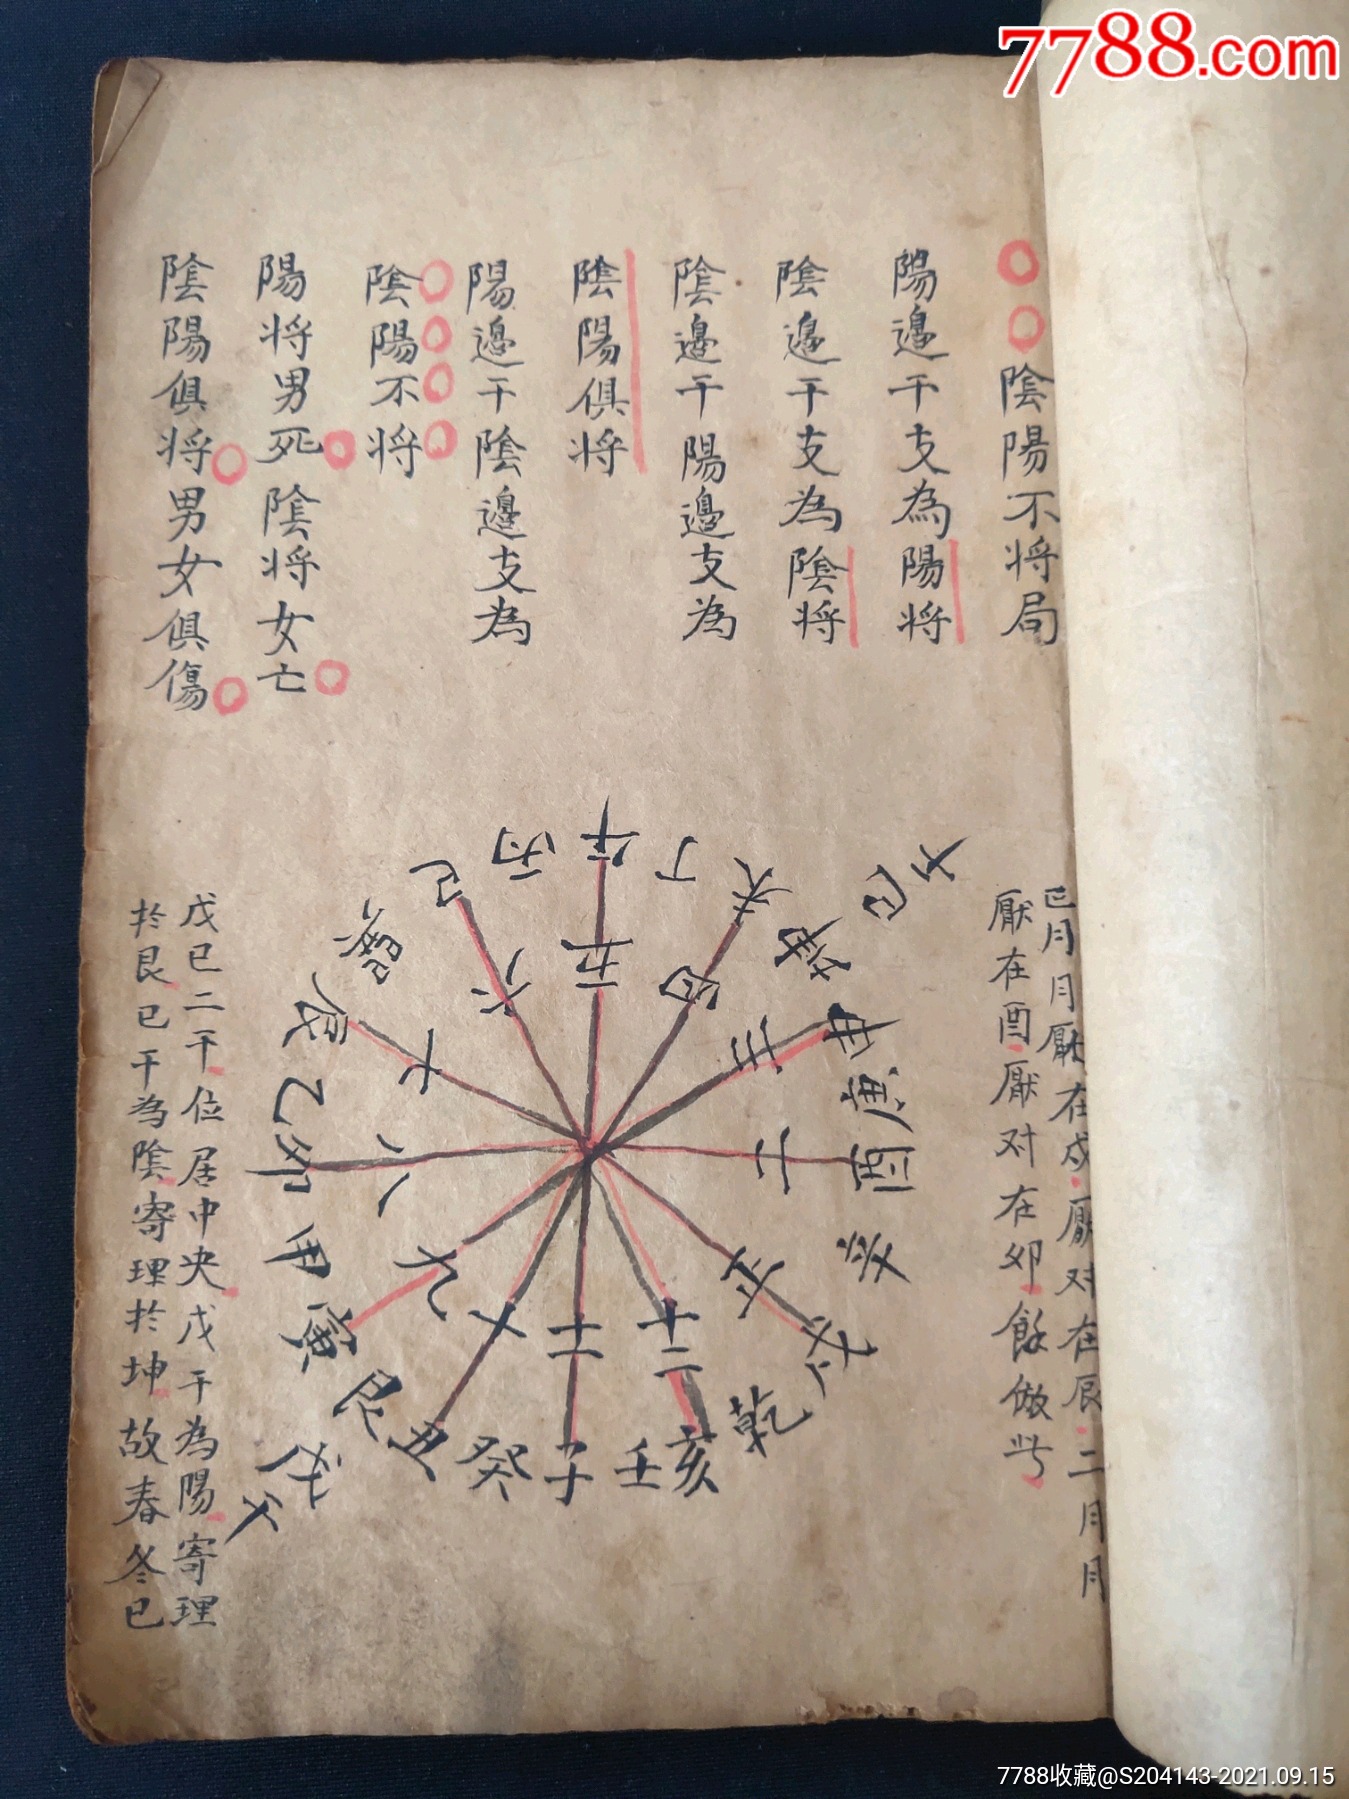 7788.com
陰陽不将局
陽邉干支為陽将
陰邉干支為陰将
陰邉干陽邉支為
陰陽俱将
陽邉干陰邉支為
陰陽不将
陽将男死陰将女亡
陰陽俱将男女俱傷
月月厭在戍厭对在辰二月月
厭在酉厭对在卯餘倣此
午
丁
未
坤
己干
申
庚
酉
辛
戌
乾
亥
壬
子
癸
丑
艮
戊干
寅
甲
卯
乙
辰
巽
巳
丙
五
四
三
二
正
十二
十一
十
九
八
七
六
戊已二干位居中央戊干為陽寄理
於艮已干為陰寄理於坤故春冬已
7788收藏@S204143-2021.09.15